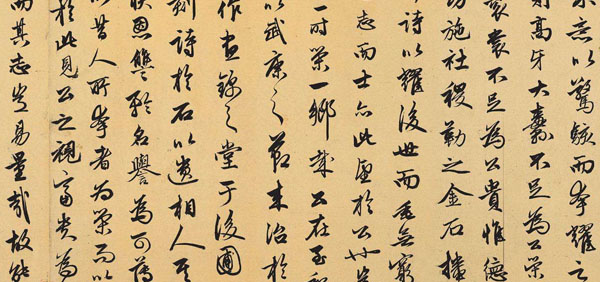 意以驚駭而夸耀之
高牙大纛不足為公榮
袞裳不足為公貴惟德
功施社稷勒之金石播
詩以耀後世而垂無窮
志而士亦此望於公也豈
一時榮一鄉哉公在至和
以武康之節來治於
作晝錦之堂于後圃
刻詩於石以遺相人其
快恩讎矜名譽為可薄
以昔人所夸者為榮而以
於此見公之視富貴為
而其志豈易量哉故能